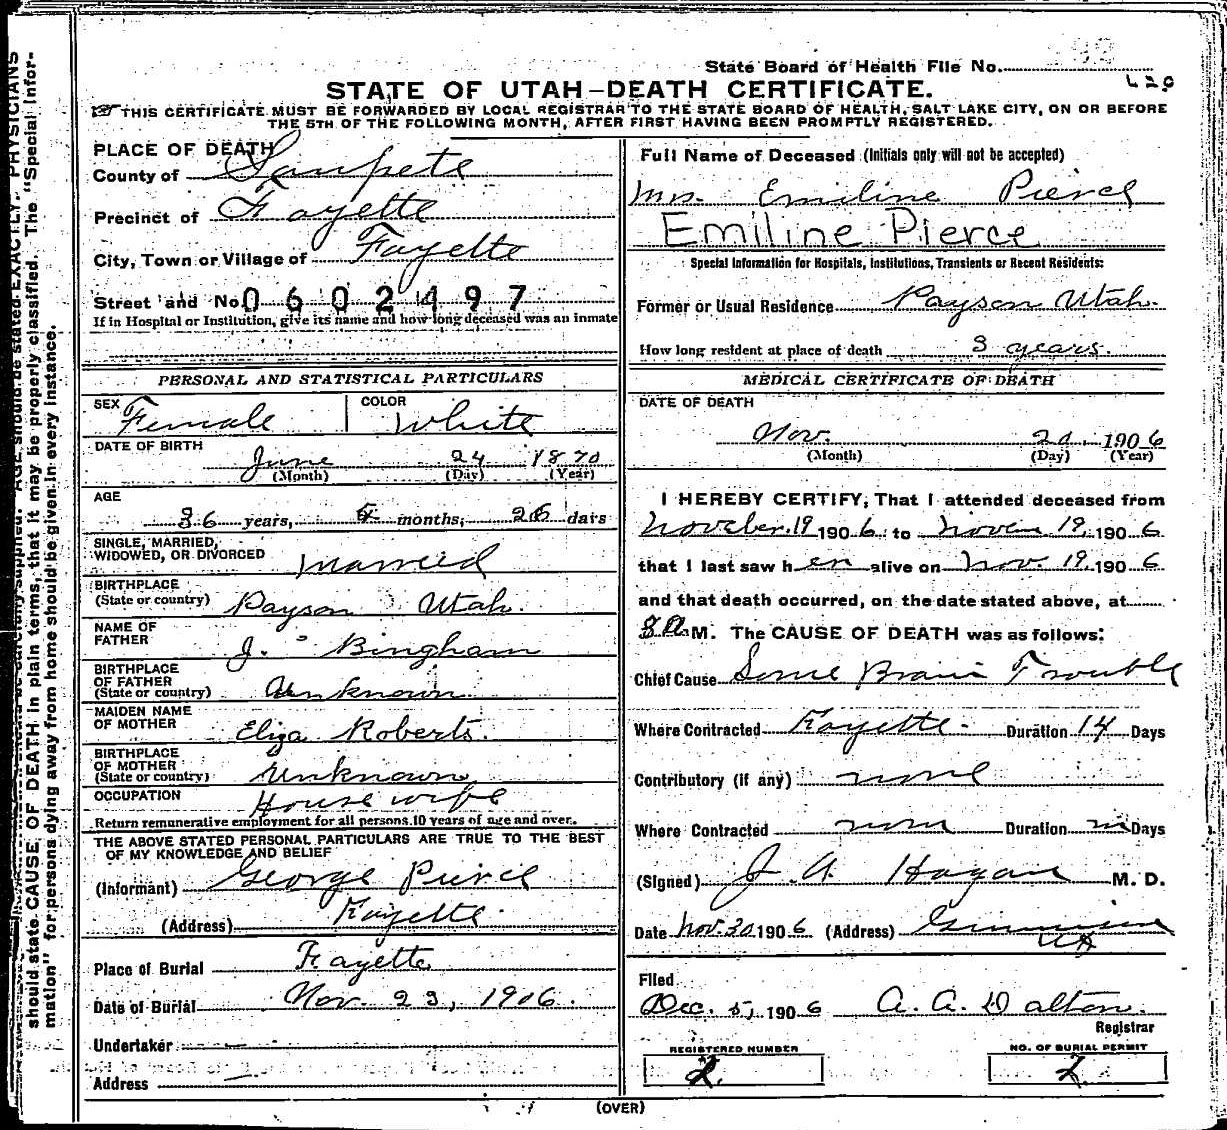 State Board of Health File No.
STATE OF UTAH—DEATH CERTIFICATE.
THIS CERTIFICATE MUST BE FORWARDED BY LOCAL REGISTRAR TO THE STATE BOARD OF HEALTH, SALT LAKE CITY, ON OR BEFORE
THE 5TH OF THE FOLLOWING MONTH, AFTER FIRST HAVING BEEN PROMPTLY REGISTERED.
PLACE OF DEATH
County of Sanpete
Precinct of Fayette
City, Town or Village of Fayette
Street and No. 0602497
If in Hospital or Institution, give its name and how long deceased was an inmate
PERSONAL AND STATISTICAL PARTICULARS
SEX Female COLOR White
DATE OF BIRTH June 24 1870
(Month) (Day) (Year)
AGE
36 years, 4 months, 26 days
SINGLE, MARRIED,
WIDOWED, OR DIVORCED married
BIRTHPLACE
(State or country) Payson Utah.
NAME OF
FATHER J. Bingham
BIRTHPLACE
OF FATHER
(State or country) Unknown
MAIDEN NAME
OF MOTHER Eliza Roberts.
BIRTHPLACE
OF MOTHER
(State or country) Unknown
OCCUPATION House wife
Return remunerative employment for all persons 10 years of age and over.
THE ABOVE STATED PERSONAL PARTICULARS ARE TRUE TO THE BEST
OF MY KNOWLEDGE AND BELIEF
(Informant) George Pierce
(Address) Fayette
Place of Burial Fayette
Date of Burial Nov. 23, 1906.
Undertaker
Address
Full Name of Deceased (Initials only will not be accepted)
Mrs. Emiline Pierce
Emiline Pierce
Special Information for Hospitals, Institutions, Transients or Recent Residents:
Former or Usual Residence Payson Utah.
How long resident at place of death 3 years.
MEDICAL CERTIFICATE OF DEATH
DATE OF DEATH
Nov. 20, 1906
(Month) (Day) (Year)
I HEREBY CERTIFY, That I attended deceased from
19 1906 to 19, 1906
that I last saw her alive on Nov. 19, 1906
and that death occurred, on the date stated above, at
8 a. M. The CAUSE OF DEATH was as follows:
Chief Cause Some Brain Trouble
Where Contracted Fayette. Duration 14 Days
Contributory (if any) none
Where Contracted Duration Days
(Signed) J. A. Hagan M. D.
Date Nov. 30 1906 (Address)
Filed
Dec. 5, 1906 A. A. Dalton.
Registrar
REGISTERED NUMBER
2.
NO. OF BURIAL PERMIT
2.
(OVER)
should state CAUSE OF DEATH in plain terms, that it may be properly classified. The "Special Infor-
mation" for persons dying away from home should be given in every instance.